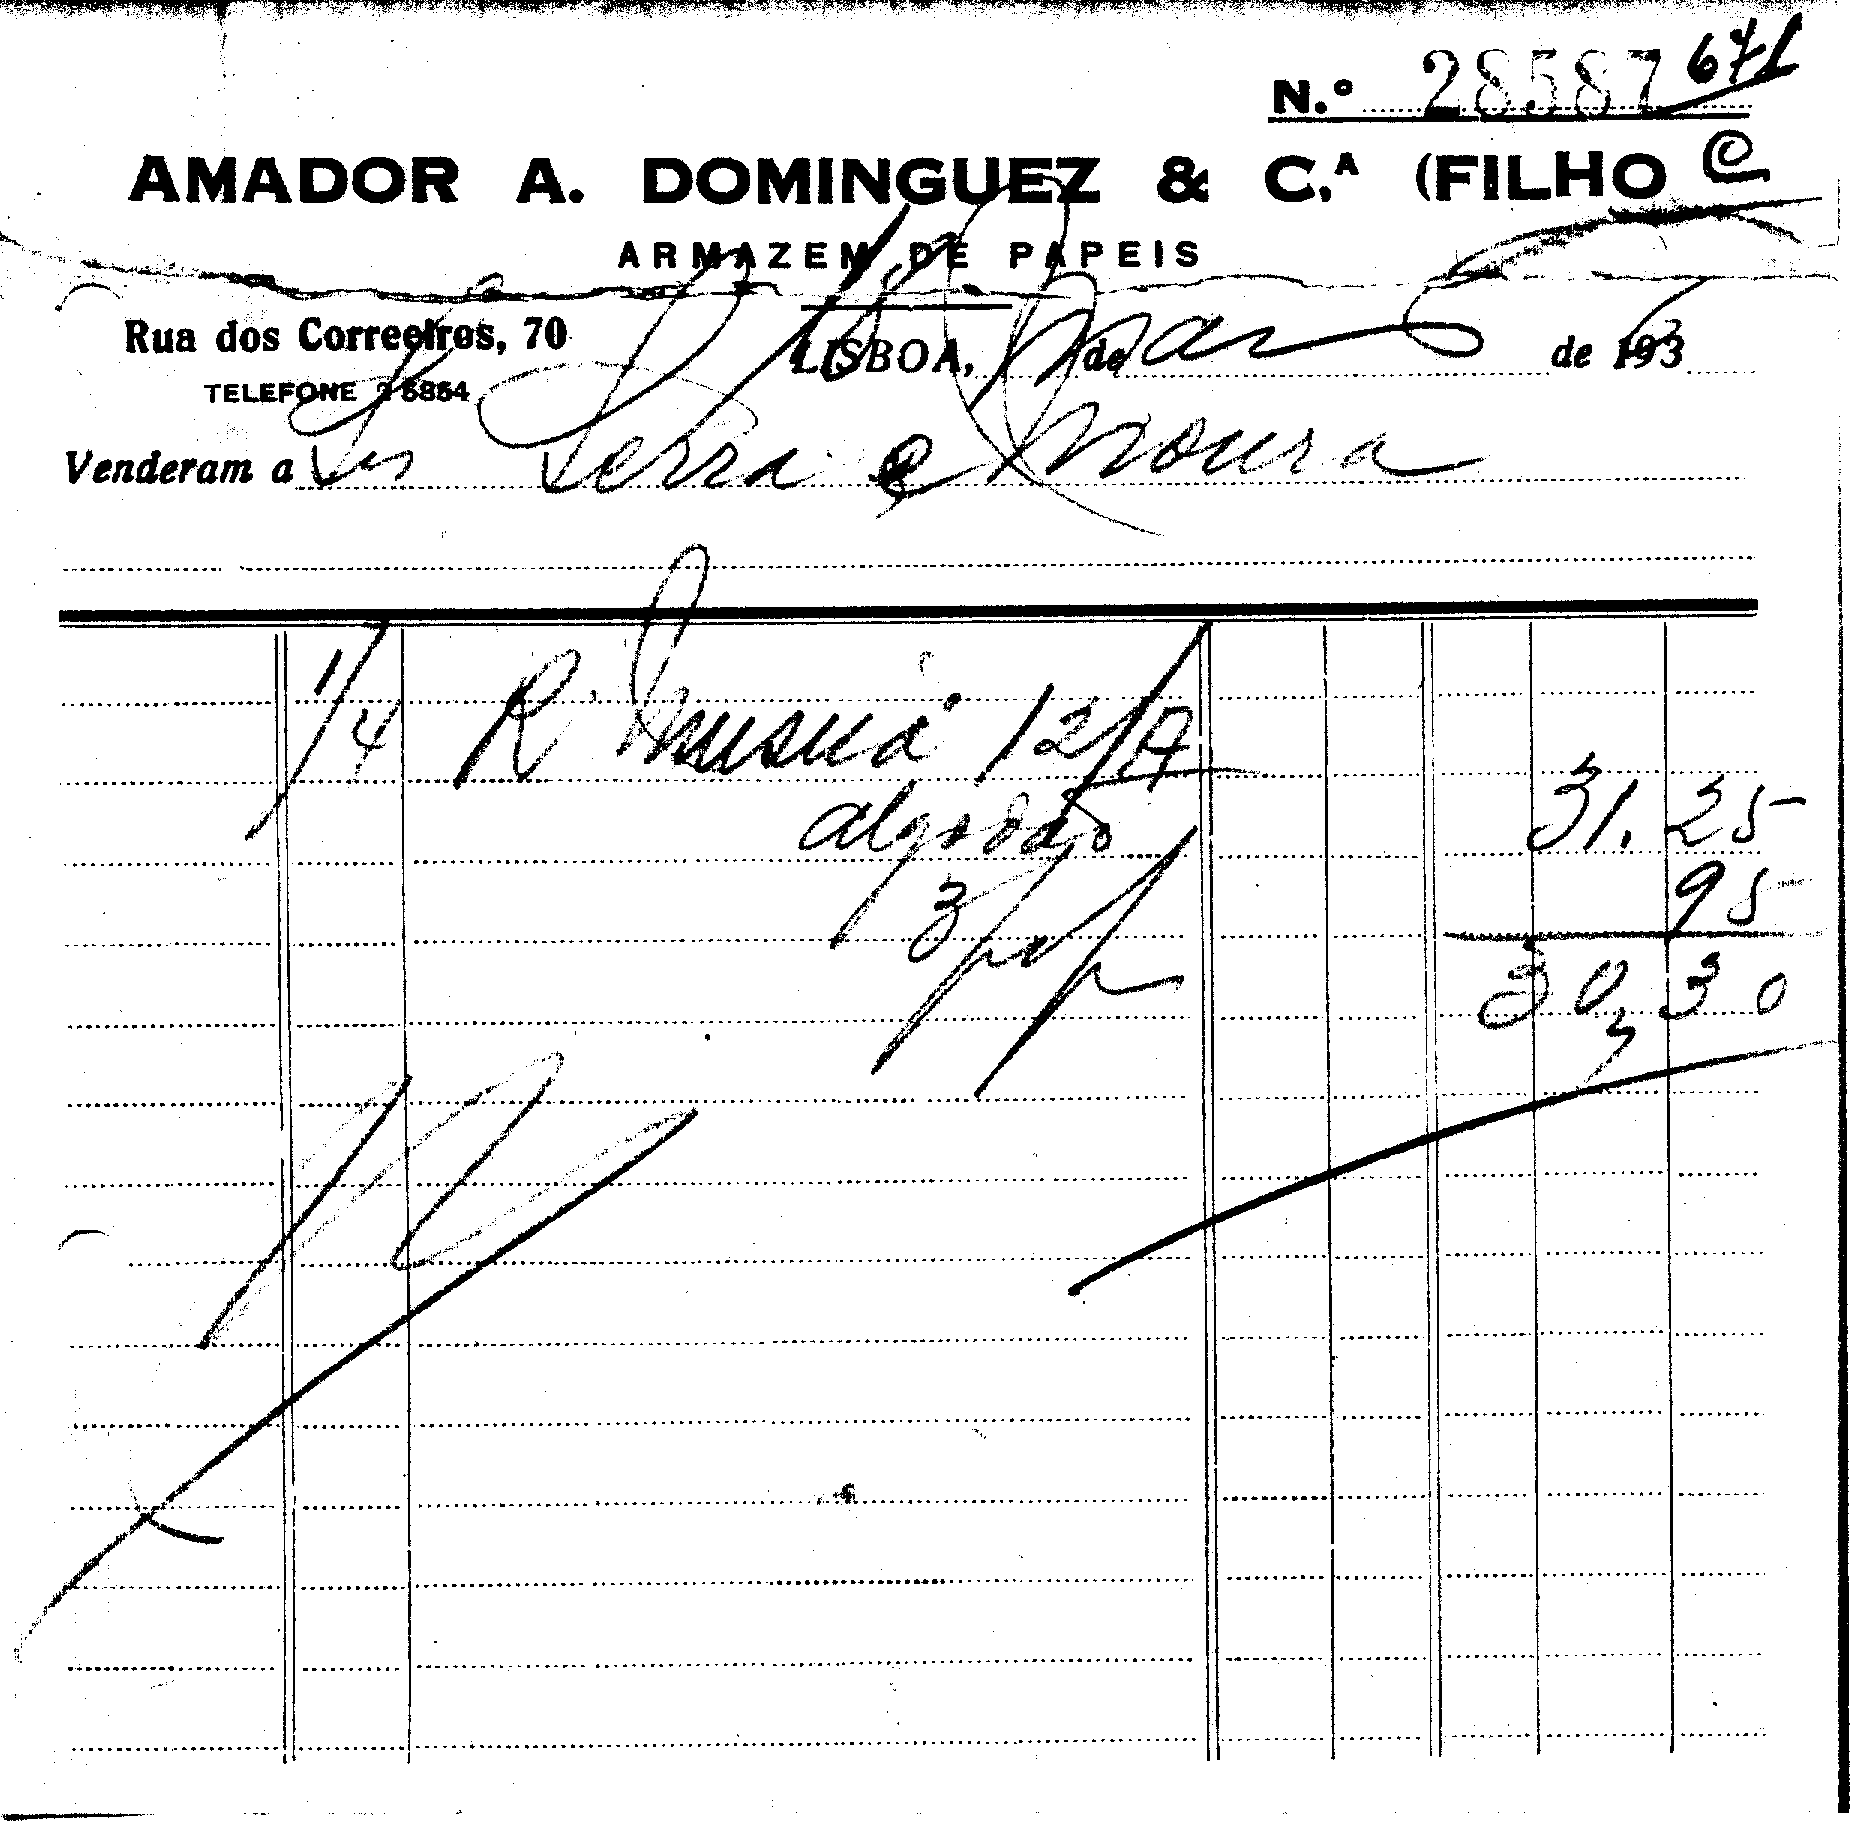 N.º 28587 671
AMADOR A. DOMINGUEZ & C.ª (FILHO
ARMAZEM DE PAPEIS
Rua dos Correeiros, 70
LISBOA, de de 193
TELEFONE 2 6864
Venderam a Serra e Moura
1/4 R. 12/A 
algodão 31.25
3 % 95
30,30